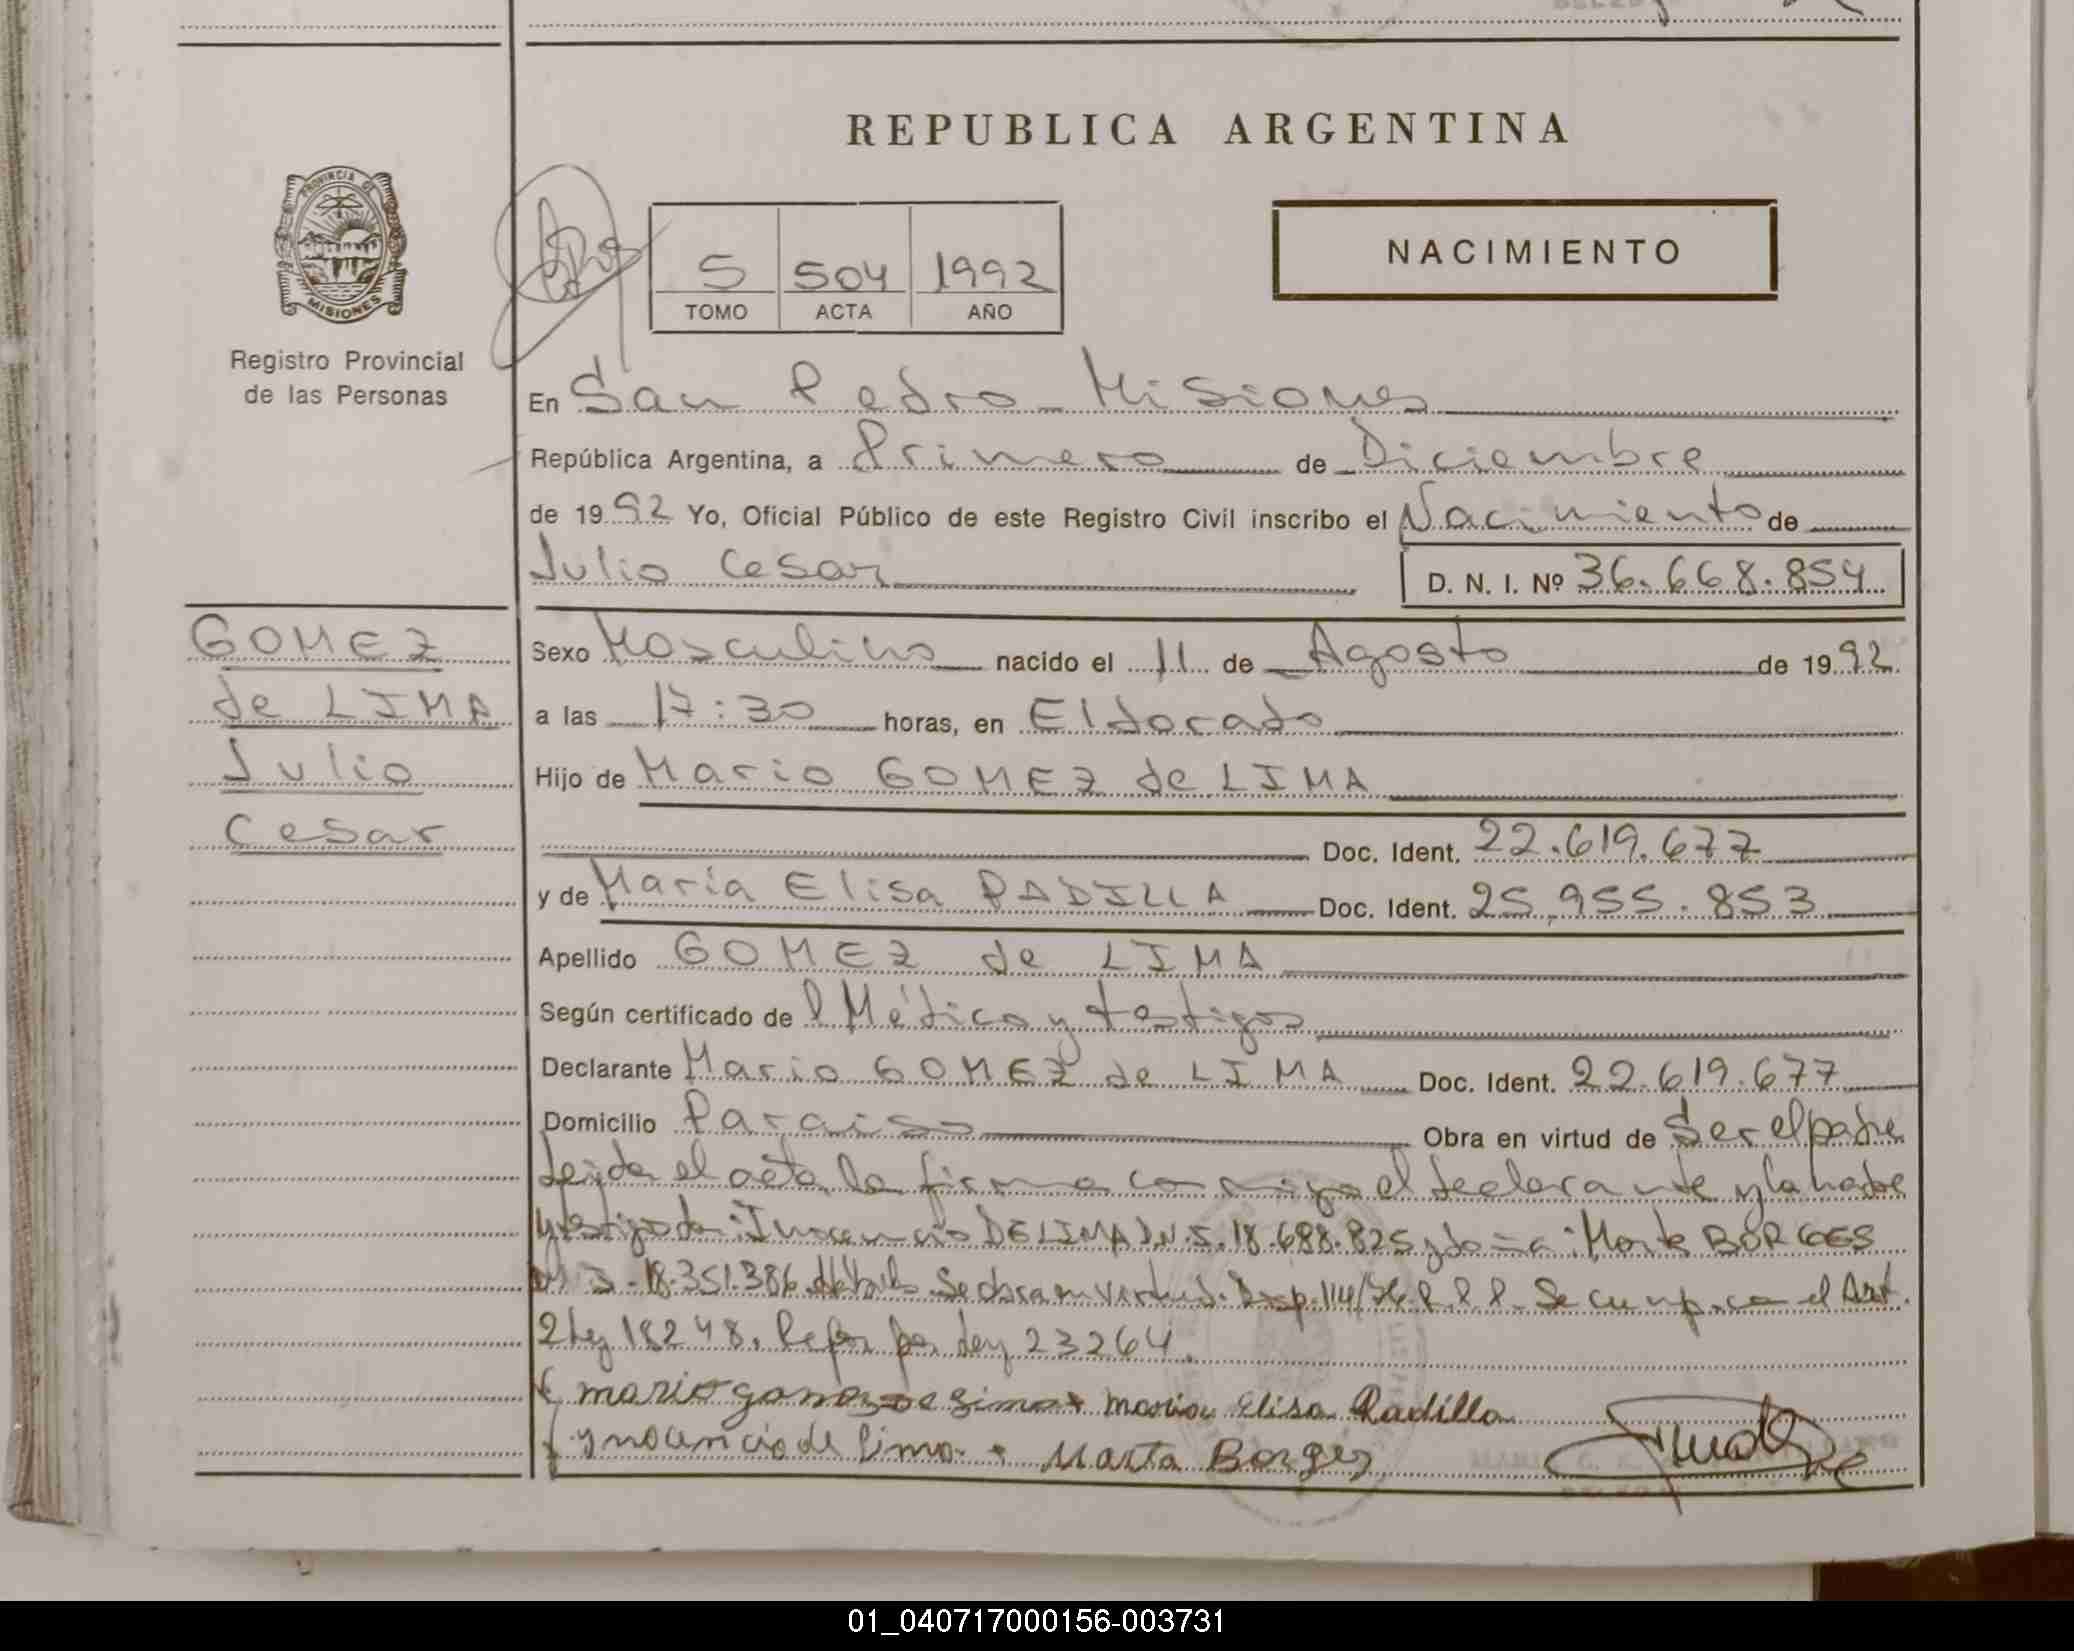 REPUBLICA ARGENTINA
PROVINCIA DE MISIONES
Registro Provincial
de las Personas
5 504 1992
TOMO ACTA AÑO
NACIMIENTO
En San Pedro Misiones
República Argentina, a Primero de Diciembre
de 1992 Yo, Oficial Público de este Registro Civil inscribo el Nacimiento de
Julio Cesar
D. N. I. Nº 36.668.854
GOMEZ
de LIMA
Julio
Cesar
Sexo Masculino nacido el 11 de Agosto de 1992
a las 17:30 horas, en Eldorado
Hijo de Mario GOMEZ de LIMA
Doc. Ident. 22.619.677
y de María Elisa PADILLA Doc. Ident. 25.955.853
Apellido GOMEZ de LIMA
Según certificado del Médico y testigos
Declarante Mario GOMEZ de LIMA Doc. Ident. 22.619.677
Domicilio Paraiso Obra en virtud de Ser el padre
leida el acta la firma conmigo el declarante y la madre
y testigos don: Inocencio DE LIMA 18.688.825 y doña: Marta BORGES
18.351.386 Se obra en virtud. Disp. 114/76 R.P.P. Se cump. con el Art.
2 Ley 18248. Refor por Ley 23264.
mario gomez de lima maria Elisa Padilla
ynocencio de lima Marta Borges
01_040717000156-003731